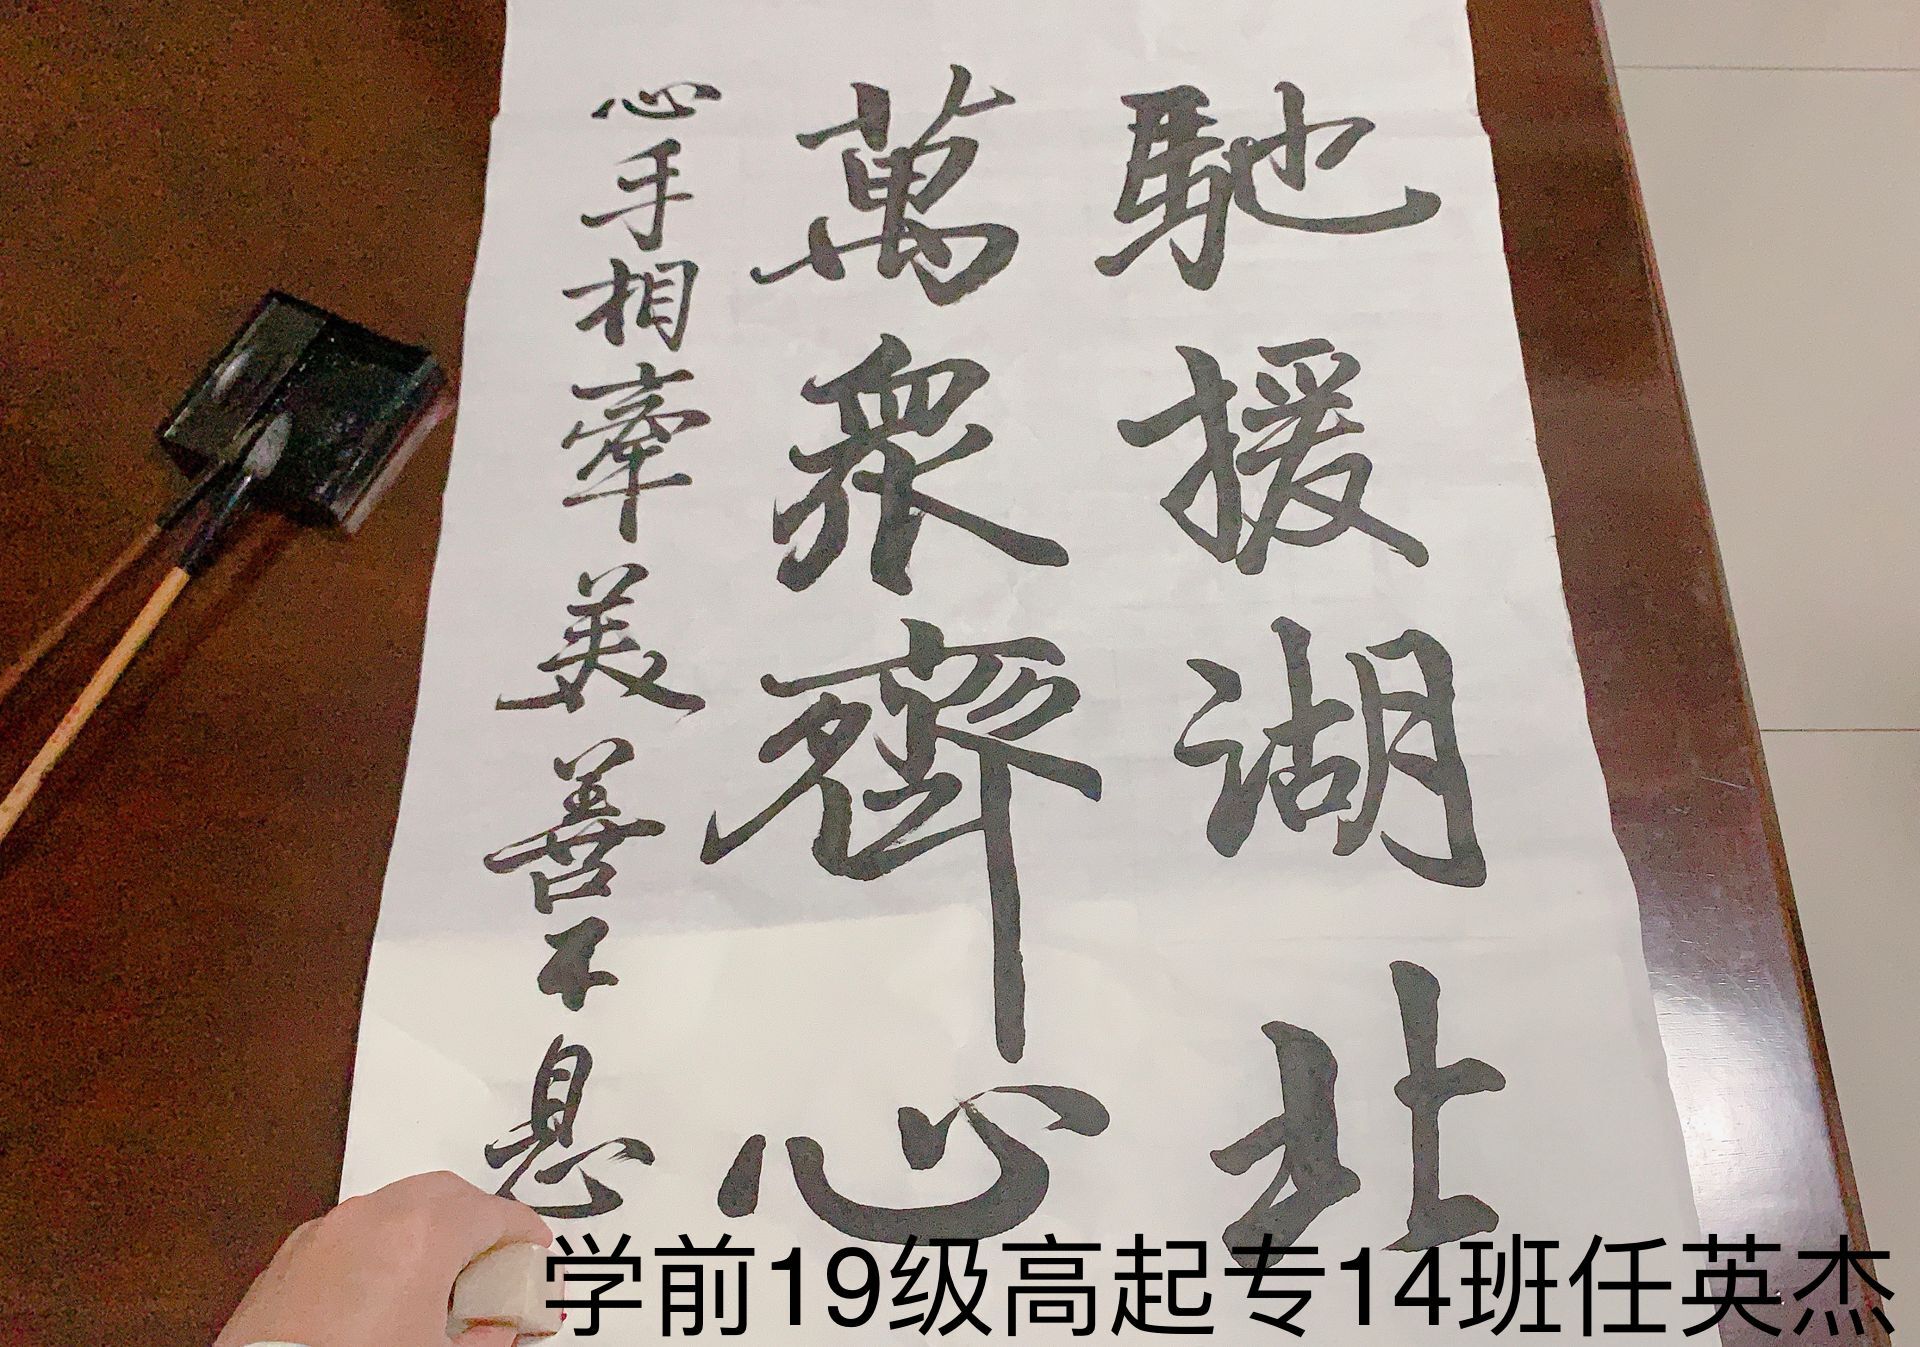 馳援湖北
萬眾齊心
心手相牽美善不息
学前19级高起专14班任英杰